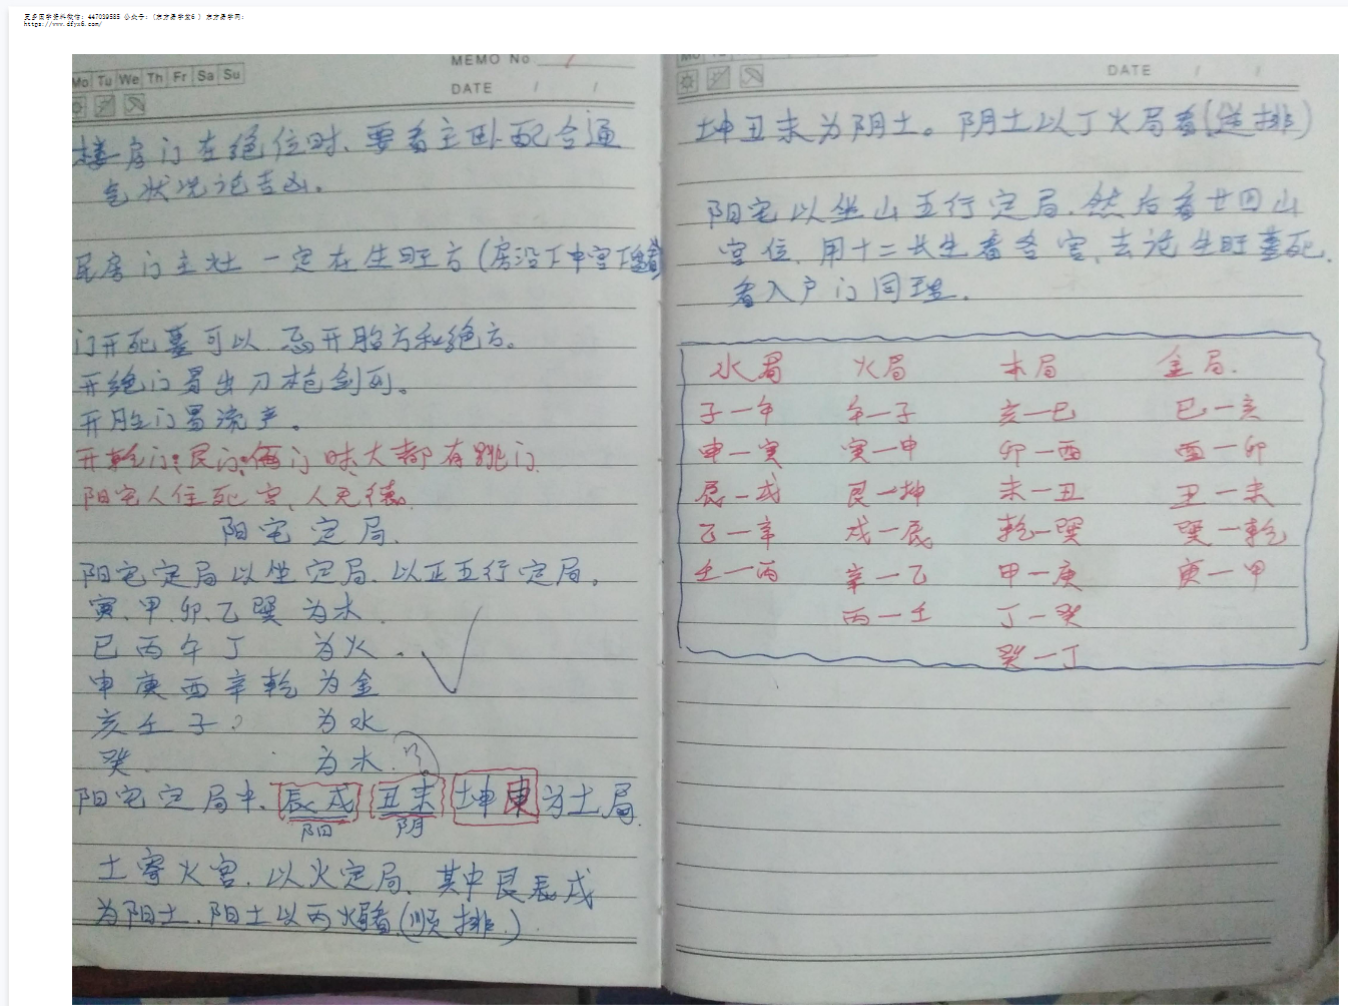 https://www.dfyx6.com/
Mo Tu We Th Fr Sa Su
MEMO No
DATE / /
楼房门在绝位时、要看主卧配合通
气状况论吉凶.
民房门主灶一定在生旺方(房没丁中宫丁
门开死墓可以.忌开胎方和绝方。
开绝门易出刀枪剑死。
开胎门易流产。
大都有跳门.
阳宅人住死宫、人无德.
阳宅定局.
阳宅定局以坐定局.以正五行定局.
寅、甲、卯、乙巽为木.
巳丙午丁为火.
申庚酉辛乾为金
亥壬子?为水
癸.为木.?
阳宅定局中、辰戌 丑未 坤 为土局.
阳 阴
土寄火宫.以火定局.其中艮辰戌
为阳土.阳土以丙火局看(顺排.)
DATE / /
坤丑未为阴土。阴土以丁火局看(逆排)
阳宅以坐山五行定局.然后看廿四山
宫位.用十二长生看各宫.去论生旺墓死.
看入户门同理.
水局 火局 木局 金局.
子一午 午一子 亥一巳 巳一亥
申一寅 寅一申 卯一酉 酉一卯
辰一戌 艮一坤 未一丑 丑一未
乙一辛 戌一辰 乾一巽 巽一乾
壬一丙 辛一乙 甲一庚 庚一甲
丙一壬 丁一癸
癸一丁